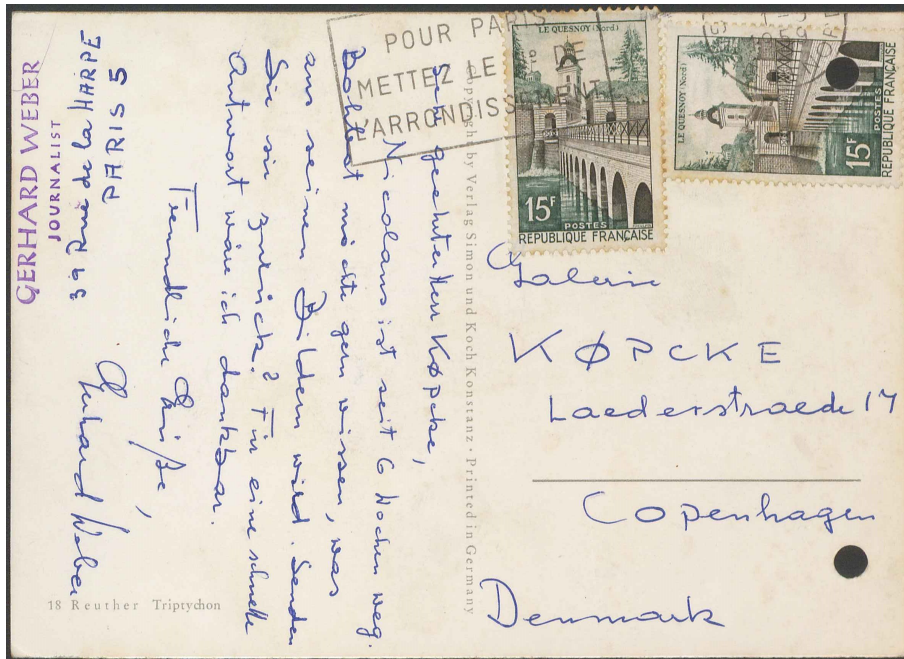 GERHARD WEBER
JOURNALIST
39 Rue de la HARPE
PARIS 5
Sehr geehrter Herr Køpcke,
Nicolaus ist seit 6 Wochen weg.
möchte gern wissen, was
aus seinen Bildern wird. Senden
Sie sie zurück? Für eine schnelle
Antwort wäre ich dankbar.
Freundliche Grüße,
Gerhard Weber
18 Reuther Triptychon
Copyright by Verlag Simon und Koch Konstanz · Printed in Germany
POUR PARIS
METTEZ LE DE
L'ARRONDISSEMENT
LE QUESNOY (Nord)
15F
POSTES
REPUBLIQUE FRANÇAISE
LE QUESNOY (Nord)
15F
POSTES
REPUBLIQUE FRANÇAISE
1959
Galerie
KØPCKE
Laederstraede 17
Copenhagen
Denmark